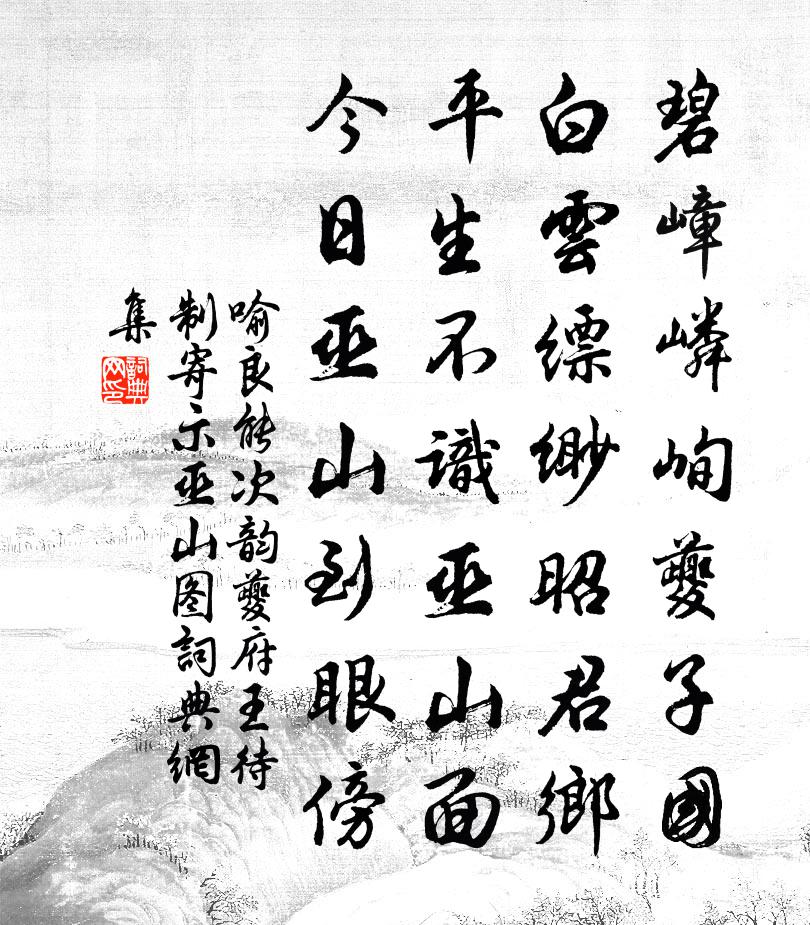 碧嶂嶙峋夔子國
白雲縹緲昭君鄉
平生不識巫山面
今日巫山到眼傍
喻良能次韵夔府王待
制寄示巫山图詞典網
集
詞典網印